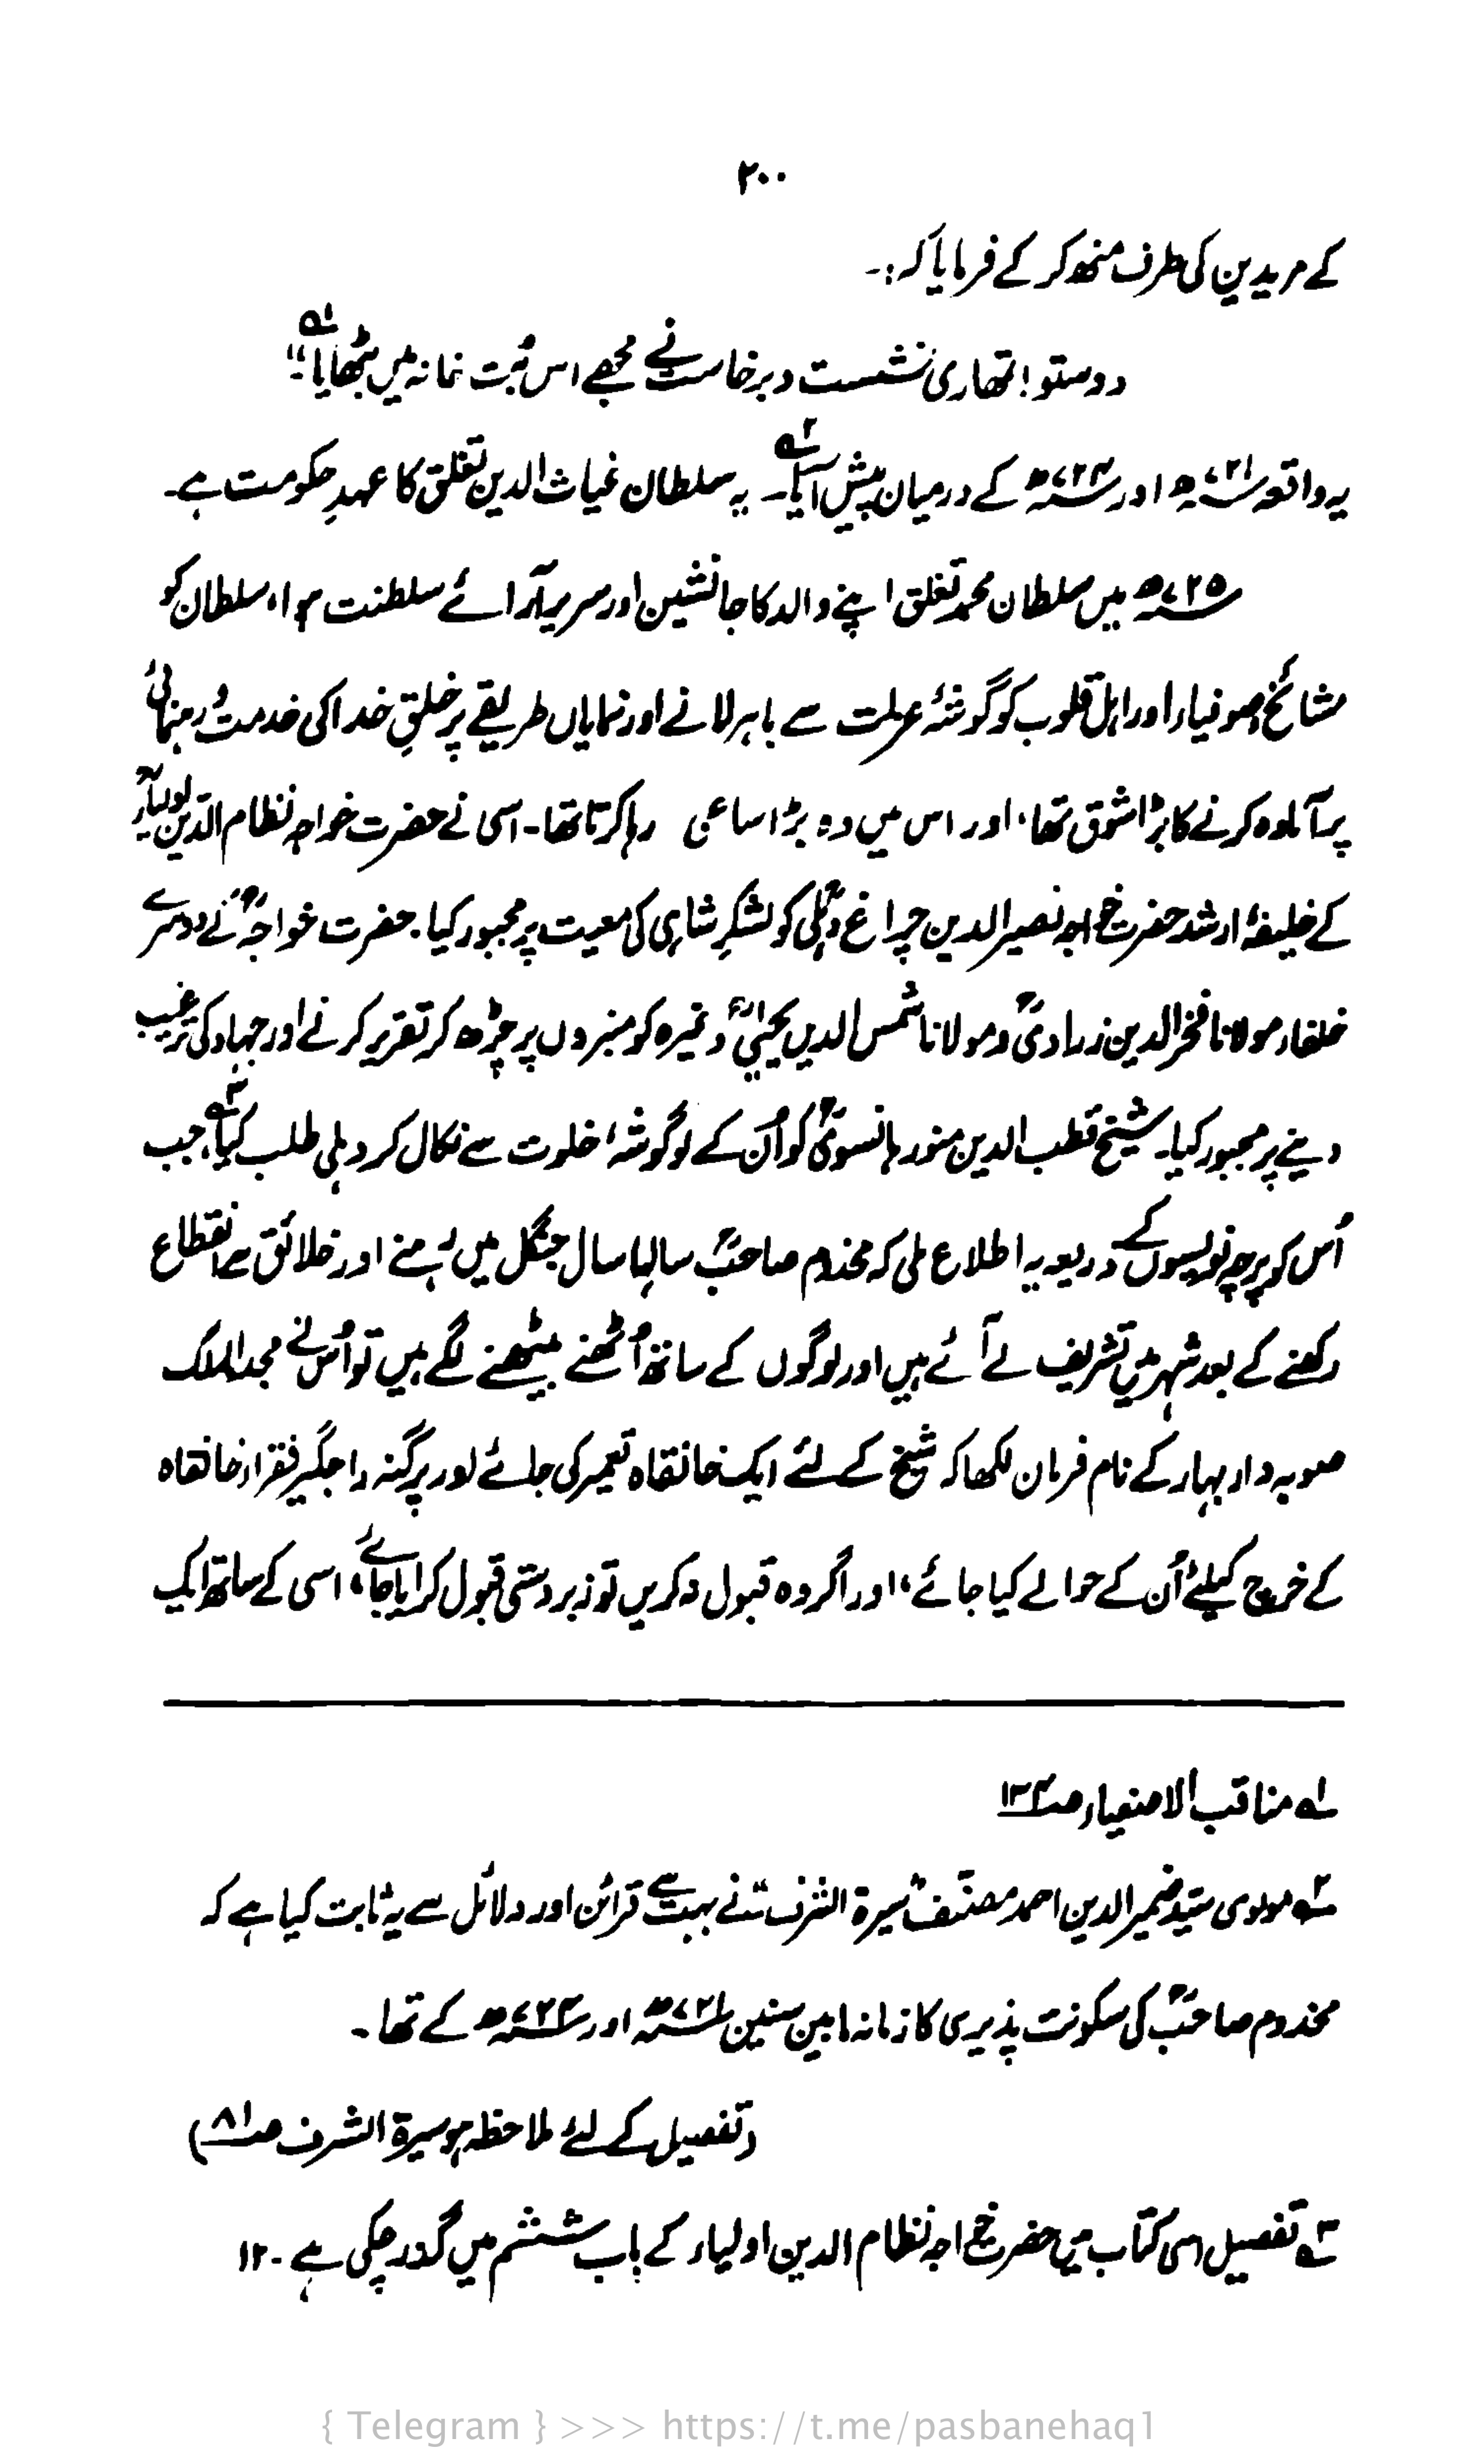 ۲۰۰
کے مریدین کی طرف منھ کر کے فرمایا کہ :۔
دوستو! تمھاری نشست و برخاست نے مجھے اس بُت خانہ میں بٹھایا۱؎"
یہ واقعہ ۷۲۱ھ اور ۷۲۴ھ کے درمیان پیش آیا۲؎۔ یہ سلطان غیاث الدین تغلق کا عہدِ حکومت ہے۔
۷۲۵ھ میں سلطان محمد تغلق اپنے والد کا جانشین اور سریر آرائے سلطنت ہوا، سلطان کو
مشائخ، صوفیاء اور اہل قلوب کو گوشۂ عزلت سے باہر لانے اور نمایاں طریقے پر خلقِ خدا کی خدمت و رہنمائی
پر آمادہ کرنے کا بڑا شوق تھا، اور اس میں وہ بڑا ساعی رہا کرتا تھا۔ اسی نے حضرت خواجہ نظام الدین اولیاءؒ
کے خلیفۂ ارشد حضرت خواجہ نصیر الدین چراغ دہلیؒ کو لشکرِ شاہی کی معیت پر مجبور کیا۔ حضرت خواجہؒ نے دوسرے
خلفاء مولانا فخر الدین زرادیؒ و مولانا شمس الدین یحییٰؒ وغیرہ کو منبروں پر چڑھ کر تقریر کرنے اور جہاد کی ترغیب
دینے پر مجبور کیا۔ شیخ قطب الدین منور ہانسویؒ کو اُن کے گوشۂ خلوت سے نکال کر دہلی طلب کیا۳؎، جب
اُس کو پرچہ نویسوں کے ذریعہ یہ اطلاع ملی کہ مخدوم صاحبؒ سالہا سال جنگل میں رہنے اور خلائق سے انقطاع
رکھنے کے بعد شہر میں تشریف لے آئے ہیں اور لوگوں کے ساتھ اُٹھنے بیٹھنے لگے ہیں تو اُس نے مجد الملک
صوبہ دار بہار کے نام فرمان لکھا کہ شیخ کے لئے ایک خانقاہ تعمیر کی جائے اور پرگنہ راجگیر فقراء خانقاہ
کے خرچ کیلئے اُن کے حوالے کیا جائے، اور اگر وہ قبول نہ کریں تو زبردستی قبول کرایا جائے، اسی کے ساتھ ایک
۱؎ مناقب الاصفیاء ص۱۳۴
۲؎ مولوی سید ضمیر الدین احمد مصنف "سیرۃ الشرف" نے بہت سے قرائن اور دلائل سے یہ ثابت کیا ہے کہ
مخدوم صاحبؒ کی سکونت پذیری کا زمانہ مابین سنین ۷۲۱ھ اور ۷۲۴ھ کے تھا۔
(تفصیل کے لئے ملاحظہ ہو سیرۃ الشرف ص۸۱)
۳؎ تفصیل اسی کتاب میں حضرت خواجہ نظام الدین اولیاء کے باب ششم میں گذر چکی ہے۔ ۱۲
{ Telegram } >>> https://t.me/pasbanehaq1